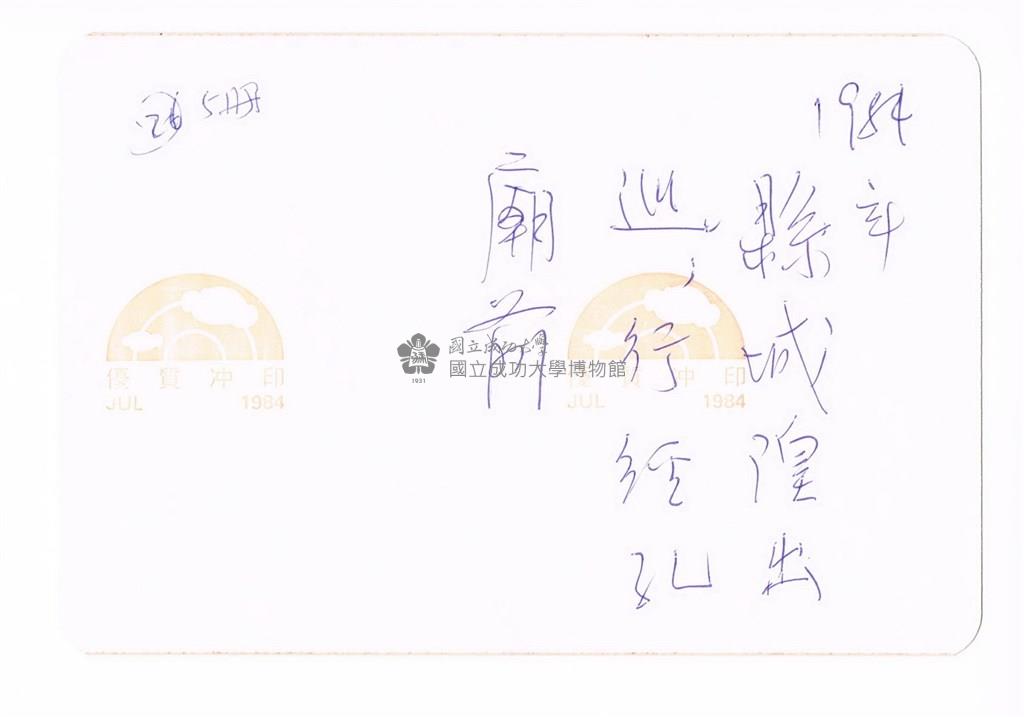 1984年
縣城隍出
巡，行經孔
廟前
5冊
優質沖印
JUL 1984
優質沖印
JUL 1984
國立成功大學
國立成功大學博物館
1931